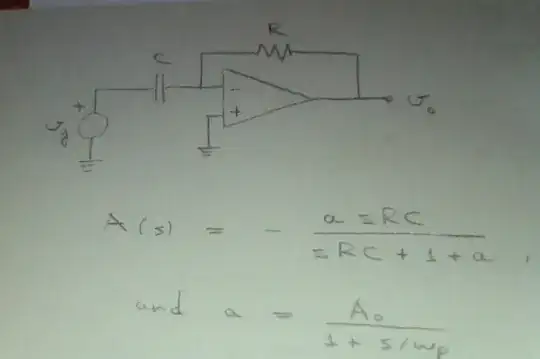 R
C
+
-
+
v_g
v_o
A(s) = - a s RC / s RC + 1 + a ,
and a = A_o / 1 + s/w_p